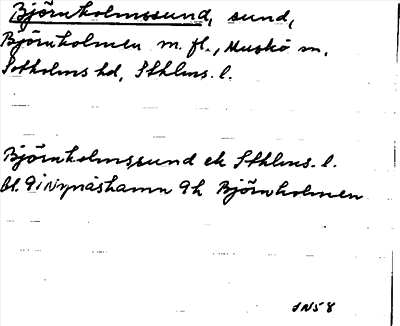 Björnholmssund, sund,
Björnholmen m. fl., Muskö sn,
Sotholms hd, Sthlms. l.
Björnholmssund ek Sthlms. l.
Bl. 9i Nynäshamn 9h Björnholmen
JN58